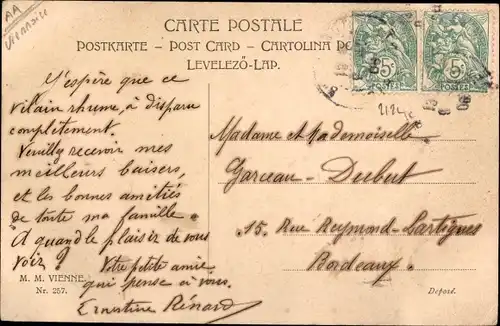 AA
CARTE POSTALE
POSTKARTE – POST CARD – CARTOLINA PO
LEVELEZŐ-LAP.
J'espère que ce
vilain rhume, a disparu
complètement.
Veuilly recevoir mes
meilleurs baisers,
et les bonnes amitiés
de toute ma famille.
A quand le plaisir de vous
voir?
Votre petite amie
qui pense à vous.
Ernestine Rénard
M. M. VIENNE
Nr. 257.
5c
POSTES
5c
POSTES
2124
Madame et Mademoiselle
Garceau-Dubut
15. Rue Reymond-Lartigues
Bordeaux.
Deposé.